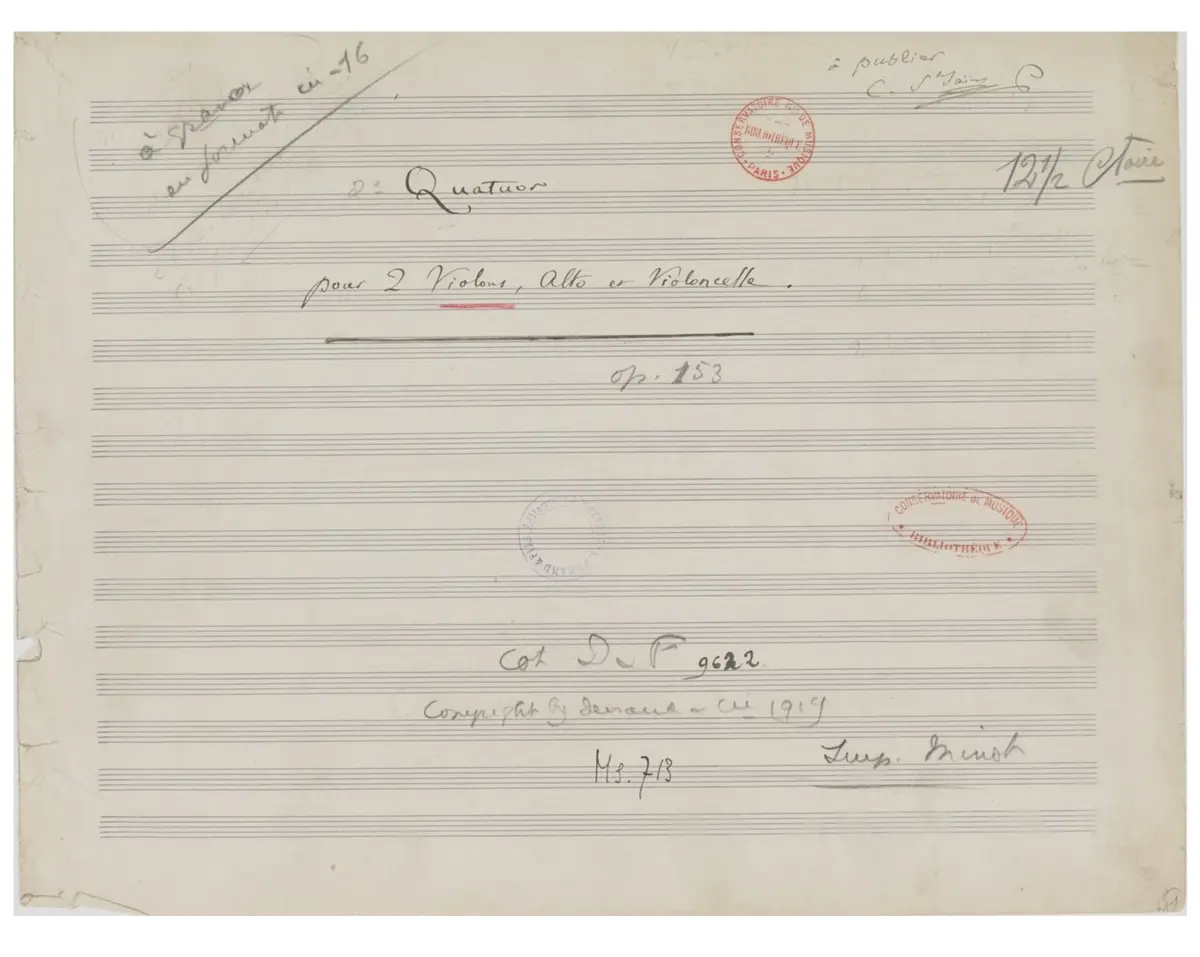 à publier
C. St Saëns
à graver
en format in-16
CONSERVATOIRE DE MUSIQUE
BIBLIOTHÈQUE
• PARIS •
12 1/2 Ctaire
2e Quatuor
pour 2 Violons, Alto et Violoncelle.
op. 153
CONSERVATOIRE DE MUSIQUE
• BIBLIOTHÈQUE •
DURAND & FILS
Cot D & F 9622
Copyright by Durand & Cie 1919
Ms. 713
Imp. Minot